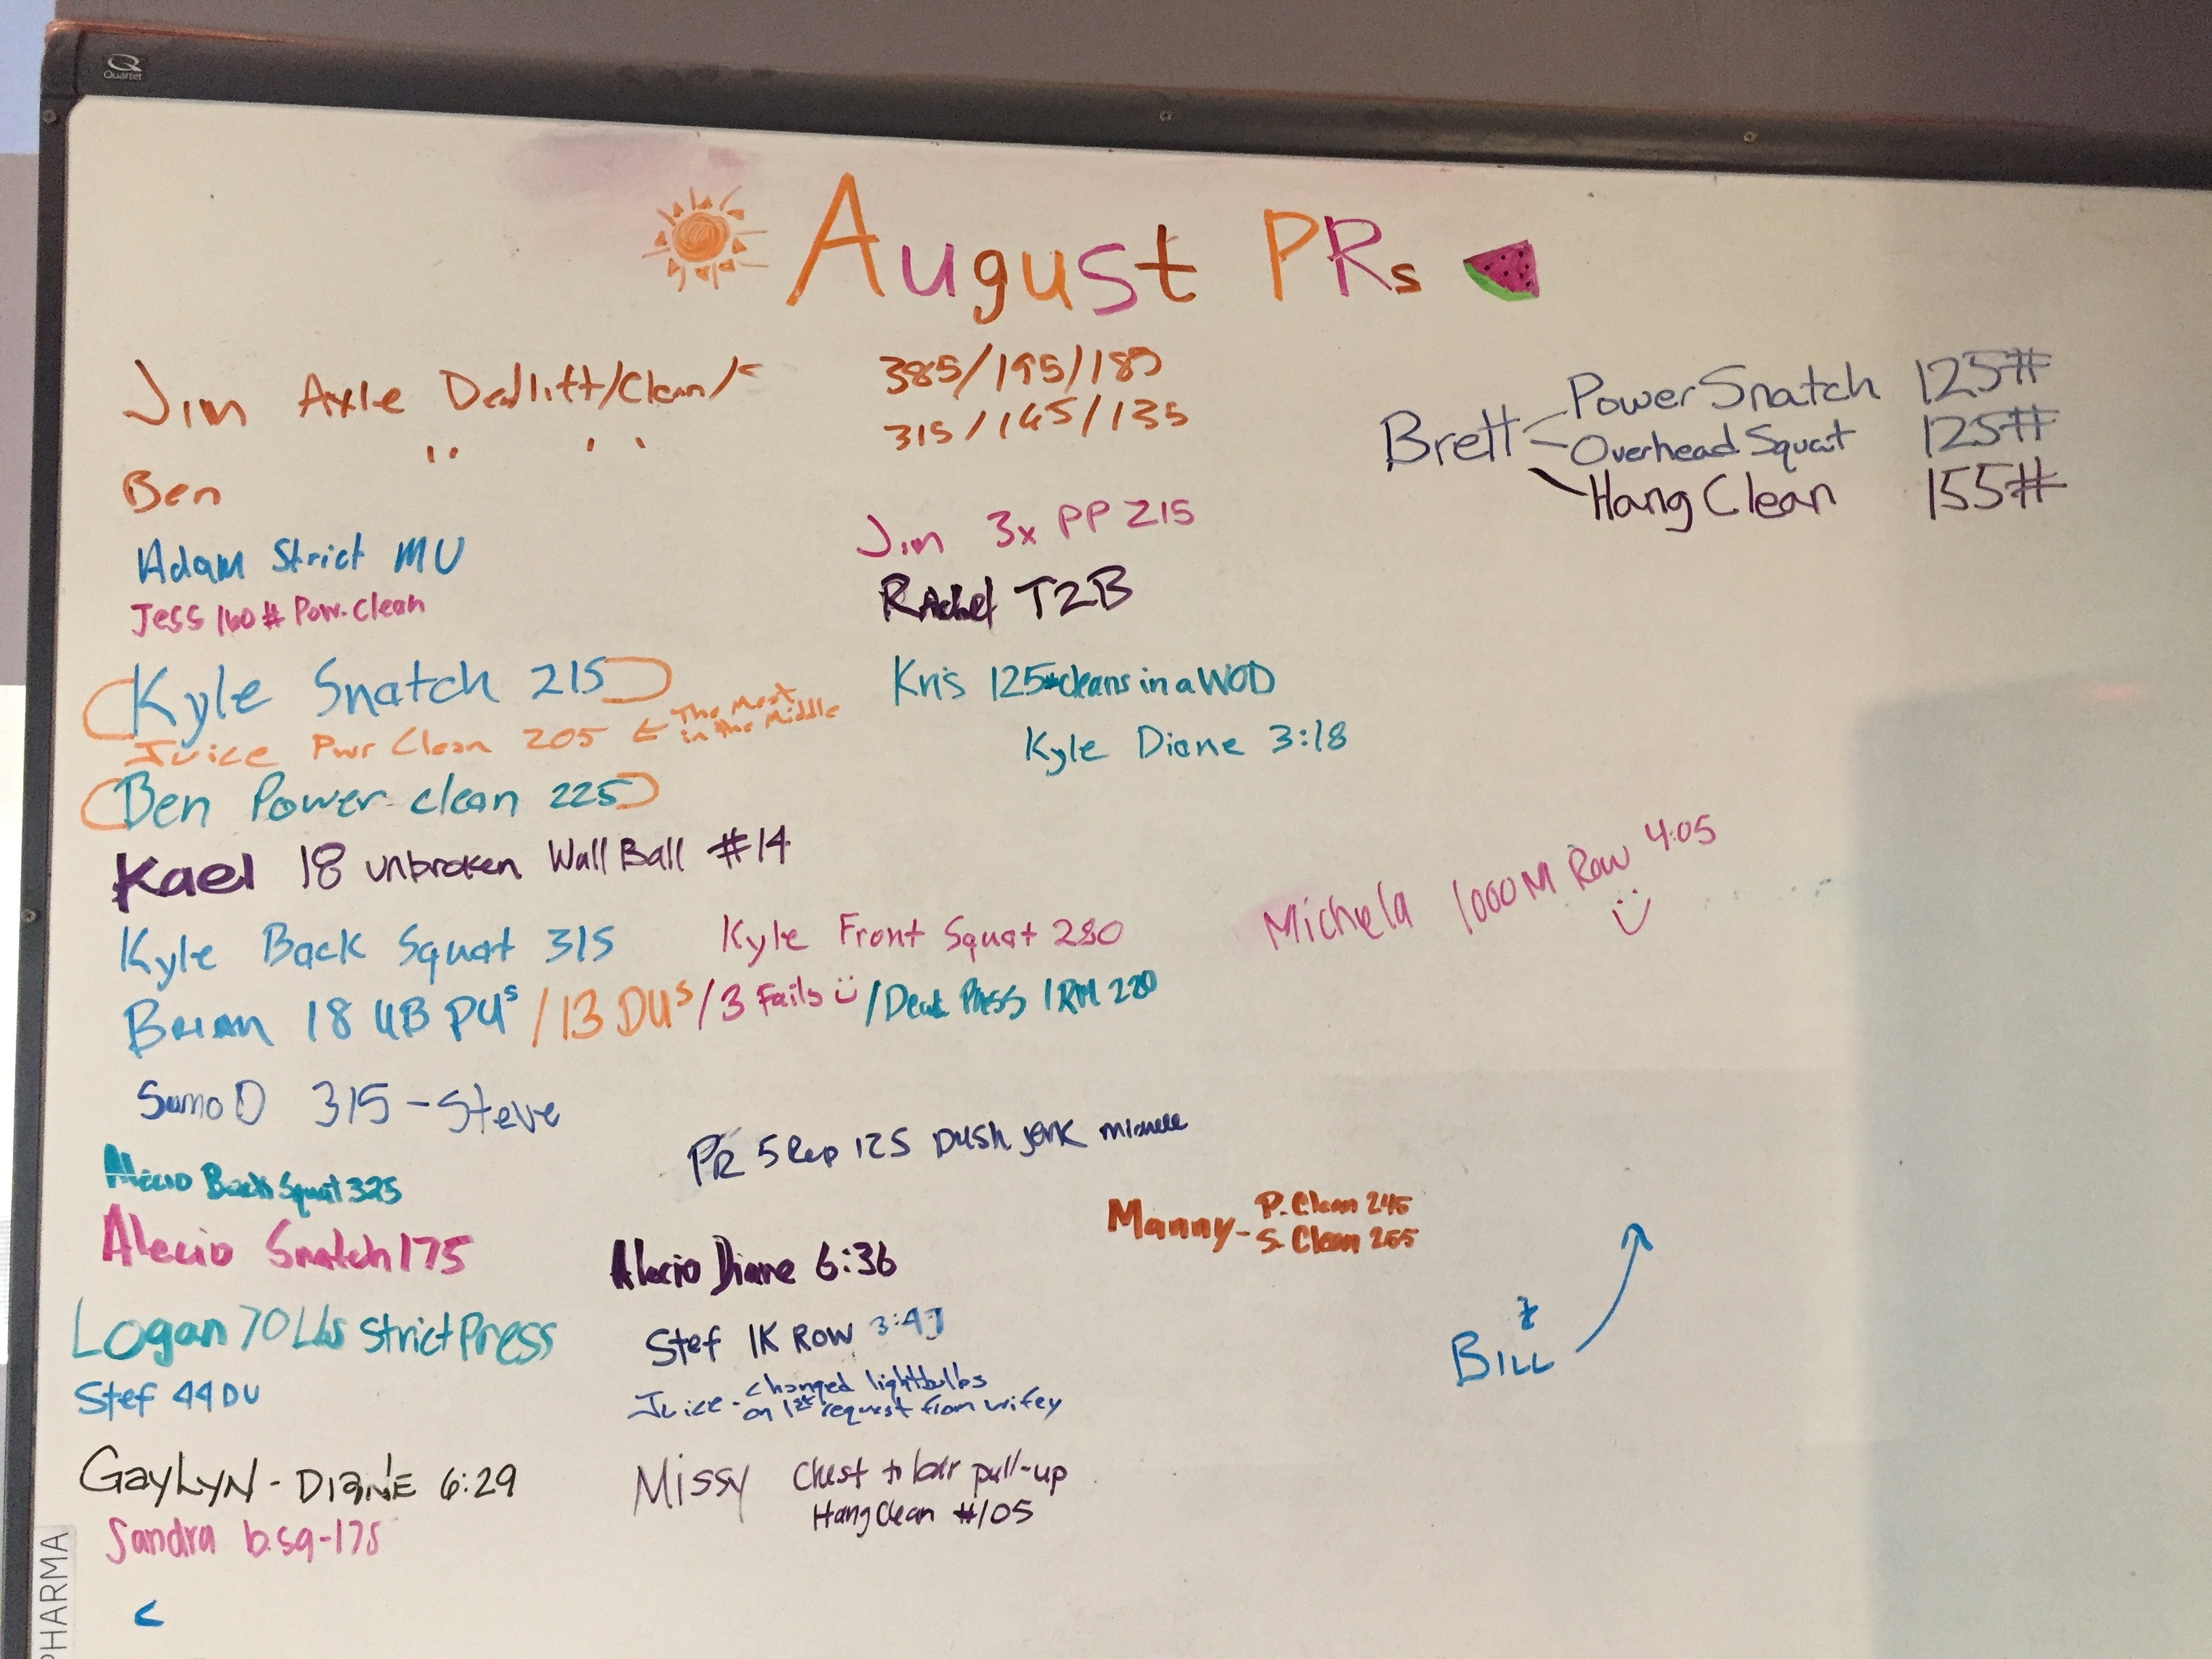 Quartet
August PRs
Jim Axle Dedlift/Clean/ 385/195/185
" " " 315/145/135
Ben
Brett
Power Snatch 125#
Overhead Squat 125#
Hang Clean 155#
Adam Strict MU
Jim 3x PP 215
Jess 160# Pow. Clean
Rachel T2B
Kyle Snatch 215
Kris 125# cleans in a WOD
Juice Pwr Clean 205 ← The Meat
in the Middle
Kyle Diane 3:18
Ben Power clean 225
Kael 18 unbroken Wall Ball #14
Michela 1000M Row 4:05
Kyle Back Squat 315
Kyle Front Squat 280
Brian 18 UB PUs / 13 DUs / 3 Fails / Press 1RM 220
Sumo D 315 - Steve
PR 5 Rep 125 push jerk
Alecio Back Squat 325
Manny - P. Clean 245
S. Clean 255
Alecio Snatch 175
Alecio Diane 6:36
Logan 70 Lbs Strict Press
Stef 1K Row
Bill
Stef 44 DU
Juice - changed lightbulbs
on 1st request from wifey
GayLyn - Diane 6:29
Missy Chest to bar pull-up
Hang Clean #105
Sandra b.sq-175
PHARMA